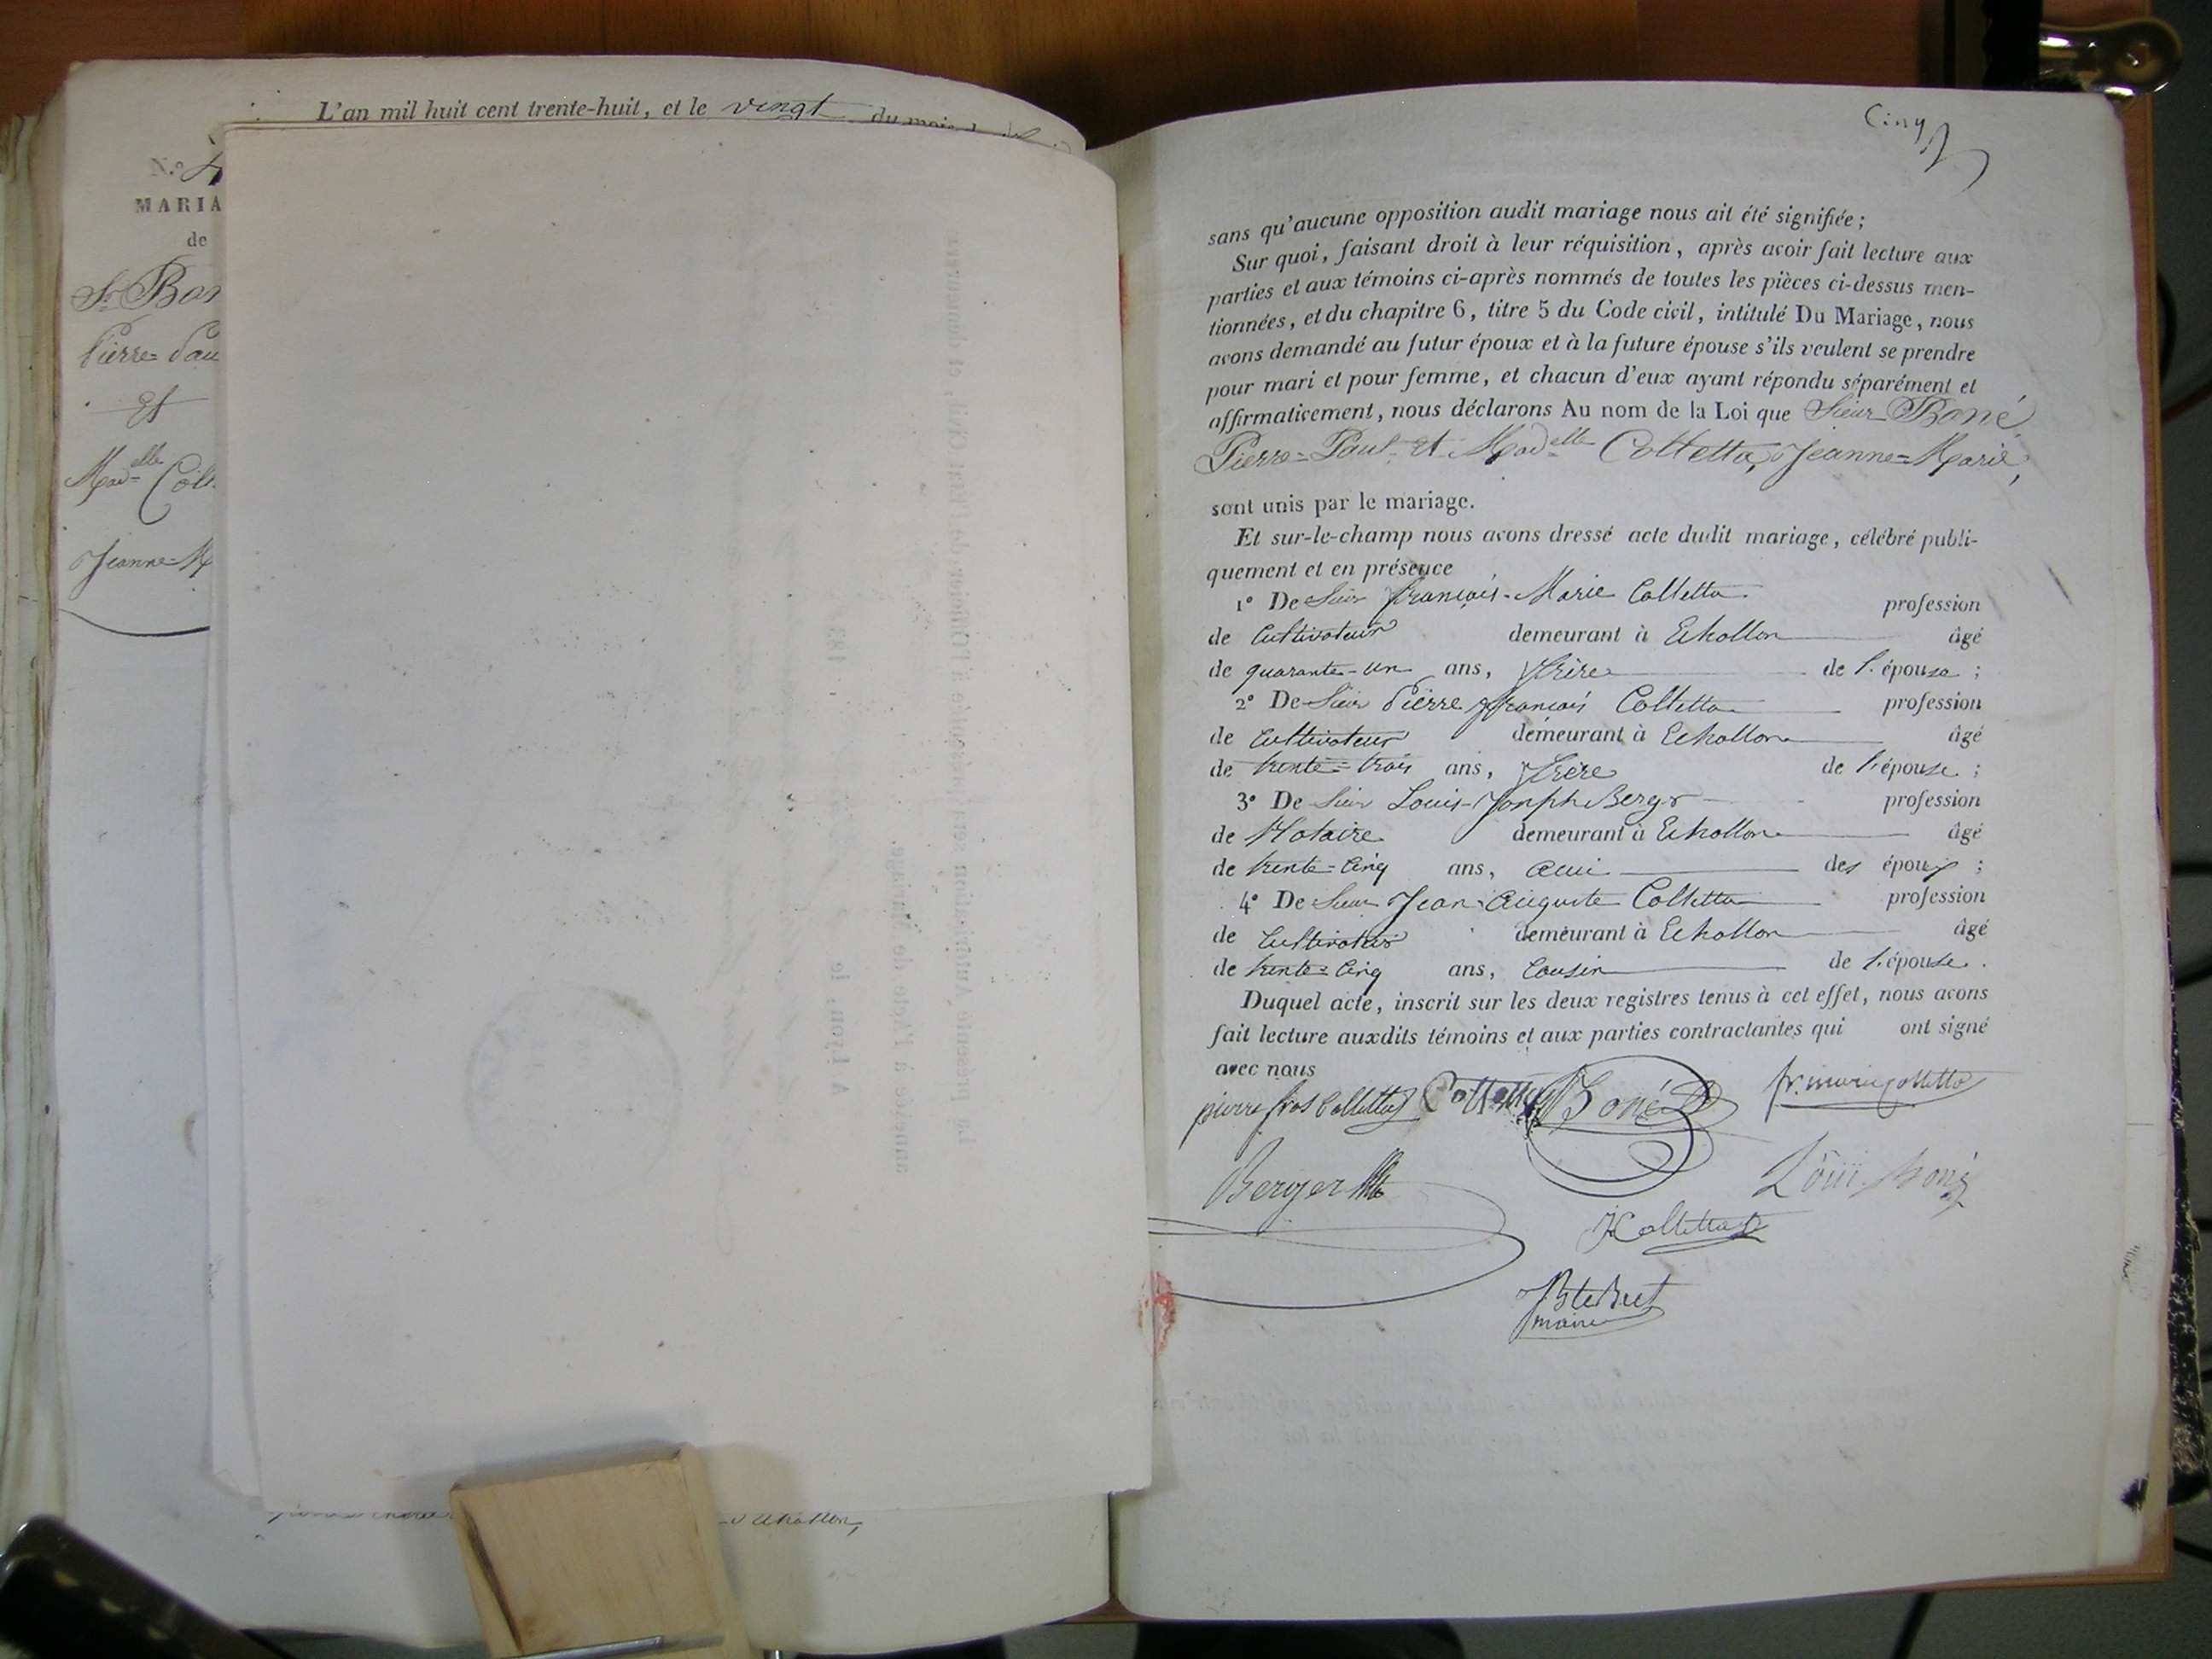 L'an mil huit cent trente-huit, et le vingt du mois
N.º 4
MARIA
de
Sr Bon
Pierre=Pau
et
Madelle Coll
Jeanne=M
Echallon,
Cinq
sans qu'aucune opposition audit mariage nous ait été signifiée;
Sur quoi, faisant droit à leur réquisition, après avoir fait lecture aux
parties et aux témoins ci-après nommés de toutes les pièces ci-dessus men-
tionnées, et du chapitre 6, titre 5 du Code civil, intitulé Du Mariage, nous
avons demandé au futur époux et à la future épouse s'ils veulent se prendre
pour mari et pour femme, et chacun d'eux ayant répondu séparément et
affirmativement, nous déclarons Au nom de la Loi que Sieur Boné
Pierre=Paul et Madelle Colletta, Jeanne=Marie,
sont unis par le mariage.
Et sur-le-champ nous avons dressé acte dudit mariage, célébré publi-
quement et en présence
1º De Sieur françois-Marie Colletta profession
de Cultivateur demeurant à Echallon âgé
de quarante-un ans, frère de l'épouse;
2º De Sieur Pierre françois Colletta profession
de Cultivateur demeurant à Echallon âgé
de trente=trois ans, frère de l'épouse;
3º De Sieur Louis-Joseph Berger profession
de Notaire demeurant à Echallon âgé
de trente=cinq ans, ami des époux;
4º De Sieur Jean-Auguste Colletta profession
de Cultivateur demeurant à Echallon âgé
de trente=cinq ans, Cousin de l'épouse.
Duquel acte, inscrit sur les deux registres tenus à cet effet, nous avons
fait lecture auxdits témoins et aux parties contractantes qui ont signé
avec nous
pierre fros Colletta Colletta Boné fr. marie Colletta
Berger Loui Boné
JColletta
JBte Buet
maire